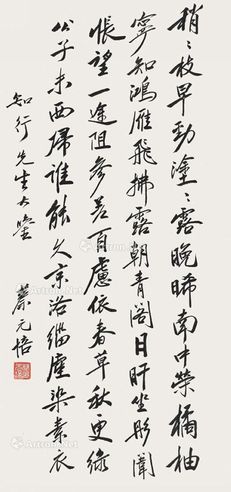 稍〻枝早勁塗〻露晚晞南中榮橘柚
寧知鴻雁飛拂露朝青閣日旰坐彤闈
悵望一途阻參差百慮依春草秋更綠
公子未西歸誰能久京洛緇塵染素衣
知行先生大鑒
蔡元培